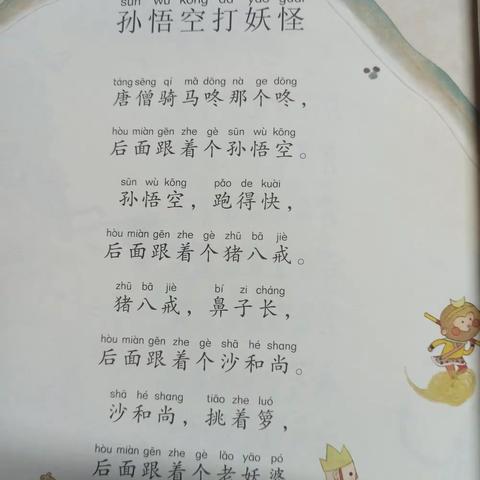 sūn wù kōng dǎ yāo guài
孙悟空打妖怪
táng sēng qí mǎ dōng nà ge dōng
唐僧骑马咚那个咚，
hòu miàn gēn zhe gè sūn wù kōng
后面跟着个孙悟空。
sūn wù kōng pǎo de kuài
孙悟空，跑得快，
hòu miàn gēn zhe gè zhū bā jiè
后面跟着个猪八戒。
zhū bā jiè bí zi cháng
猪八戒，鼻子长，
hòu miàn gēn zhe gè shā hé shang
后面跟着个沙和尚。
shā hé shang tiāo zhe luó
沙和尚，挑着箩，
hòu miàn gēn zhe gè lǎo yāo pó
后面跟着个老妖婆